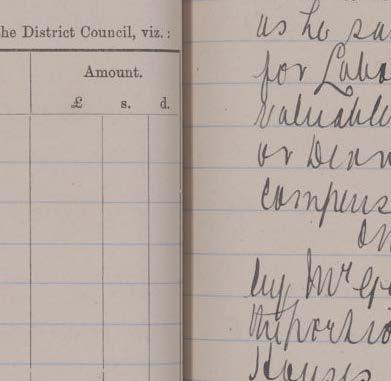 he District Council, viz.:
Amount.
£ s. d.
as he sa
for Labo
valuable
or
compens
on
by Mr Ge
the portio
Houses